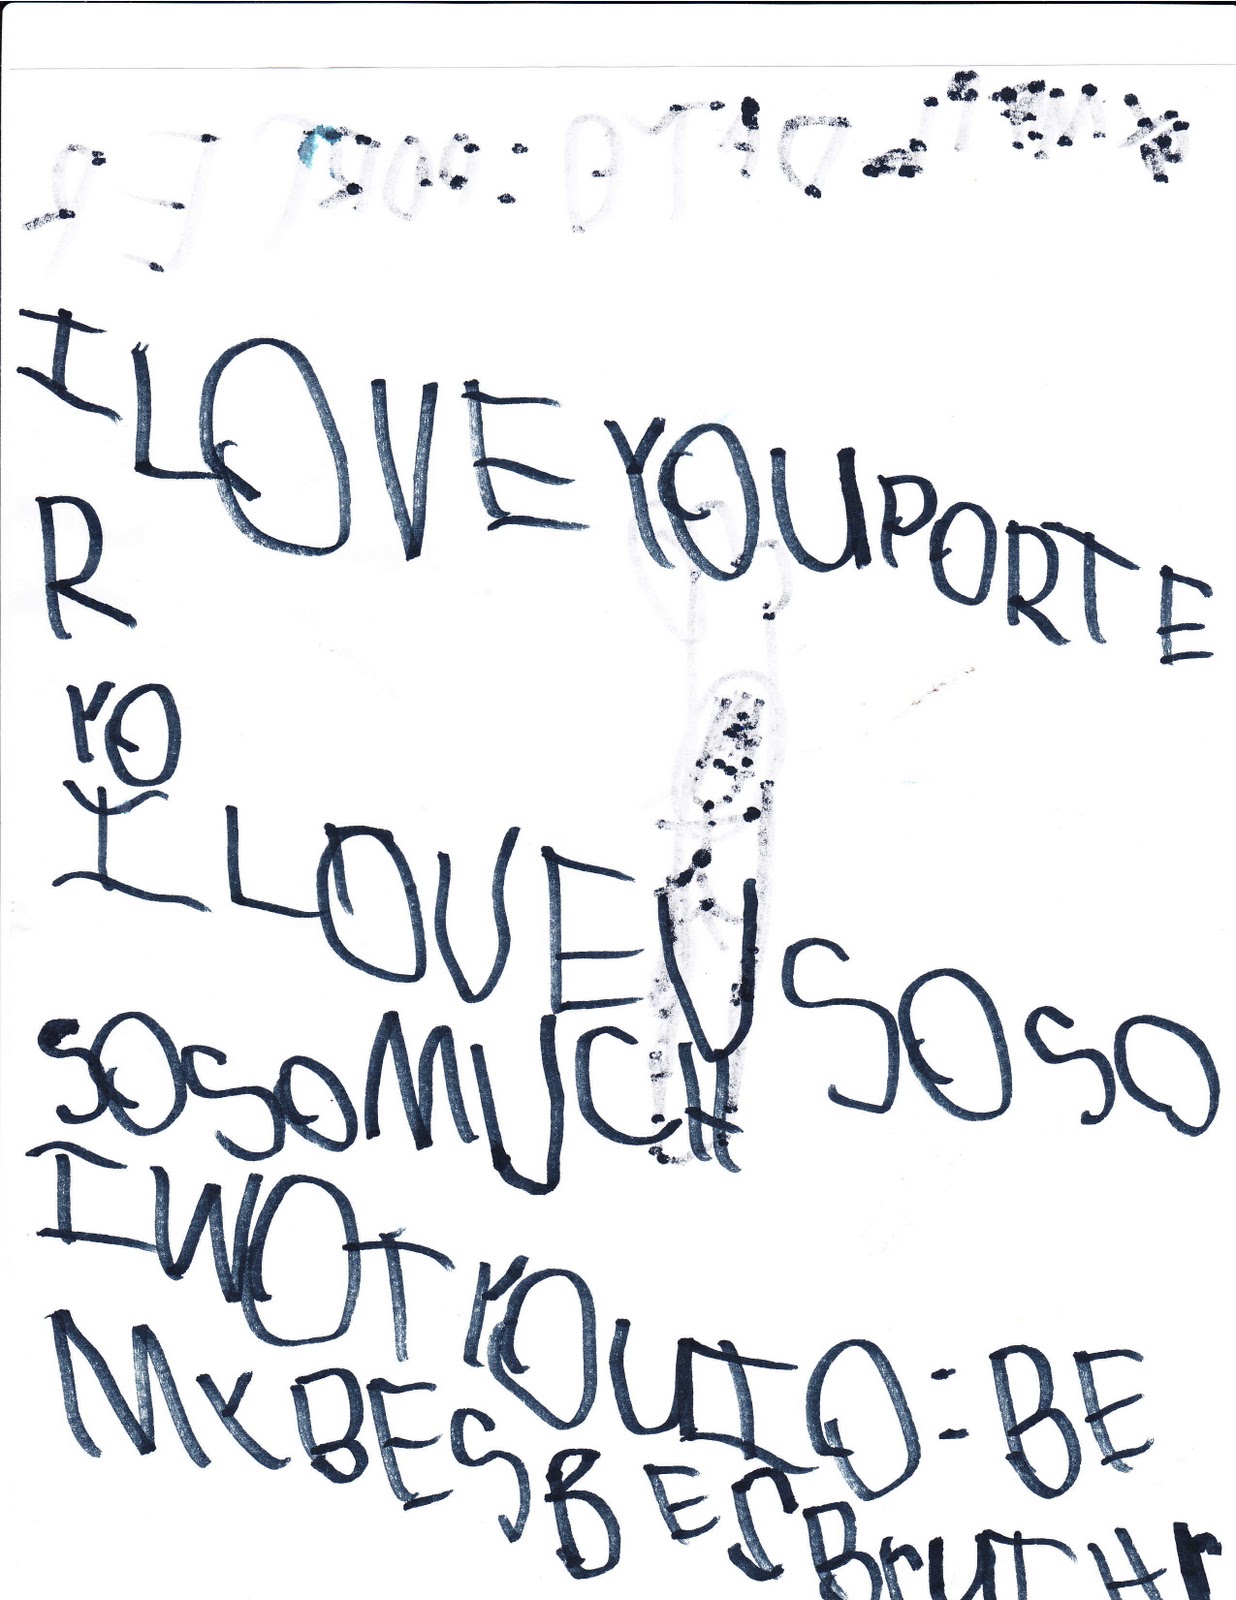 I LOVE YOU PORTE
R
YO
I LOVE U SO SO
SO SO MUCH
I WOT YOU TO = BE
MY BES BES BruTHr